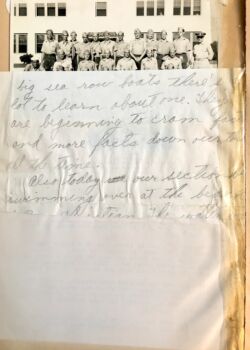 big sea row boats there's
lot to learn about one. They
are beginning to cram
and more facts down our
all the time.
Also today our section
swimming over at the